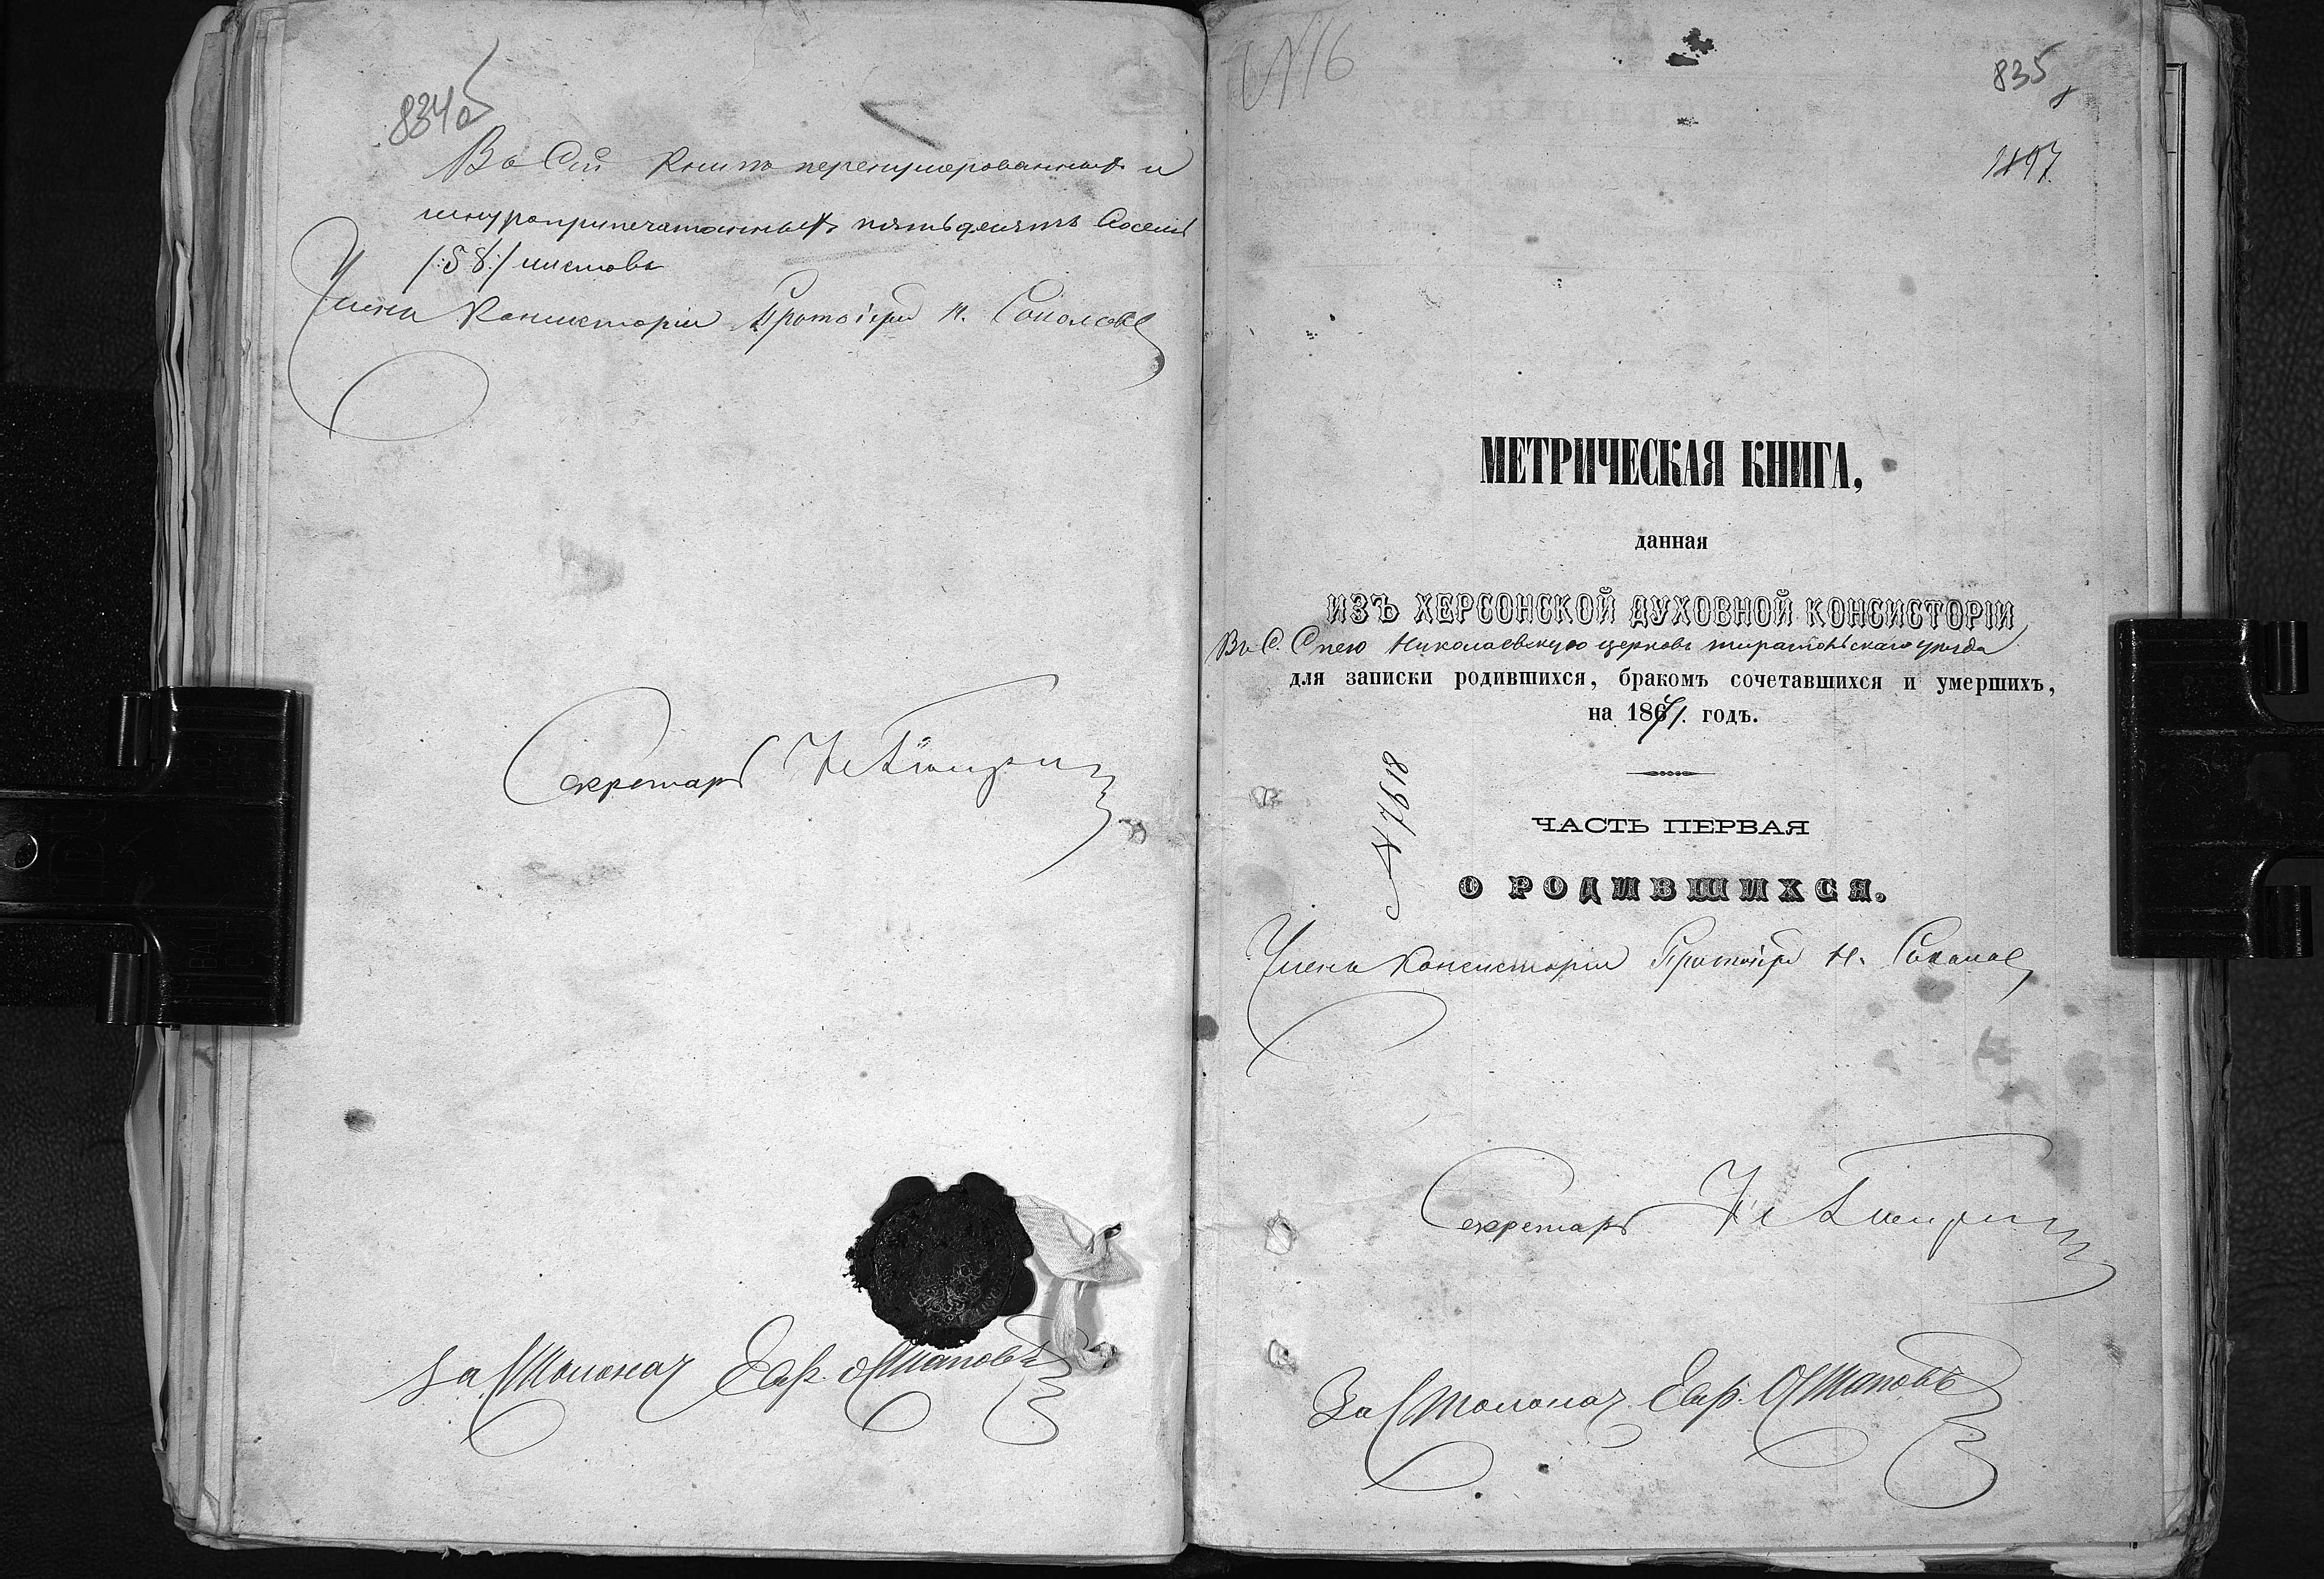 834об
Въ Сей книгѣ перенумерованныхъ и
шнуроприпечатанныхъ пятьдесятъ восемь
/:58:/ листовъ
Членъ Консисторіи Протоіерей Н. Соколовъ
Секретарь
За Столонач. Евф. Остаповъ
№16
835
1497
МЕТРИЧЕСКАЯ КНИГА,
данная
ИЗЪ ХЕРСОНСКОЙ ДУХОВНОЙ КОНСИСТОРІИ
Въ С. Спею Николаевскую церковь тираспольскаго уѣзда
для записки родившихся, бракомъ сочетавшихся и умершихъ,
на 1871. годъ.
№ 7618
ЧАСТЬ ПЕРВАЯ
О РОДИВШИХСЯ.
Членъ Консисторіи Протоіерей Н. Соколов
Секретарь
За Столонач. Евф. Остаповъ